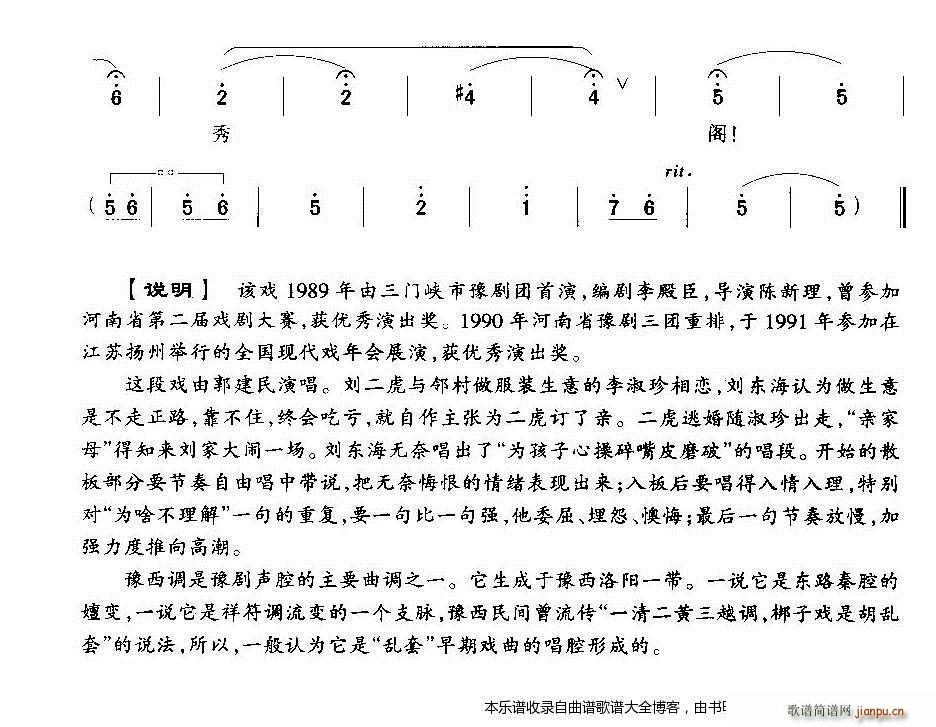 6 | 2 | 2 | #4 | 4 ∨ | 5 | 5
秀 阁！
rit.
( 5 6 | 5 6 | 5 | 2 | 1 | 7 6 | 5 | 5 )
【说明】 该戏1989年由三门峡市豫剧团首演，编剧李殿臣，导演陈新理，曾参加
河南省第二届戏剧大赛，获优秀演出奖。1990年河南省豫剧三团重排，于1991年参加在
江苏扬州举行的全国现代戏年会展演，获优秀演出奖。
这段戏由郭建民演唱。刘二虎与邻村做服装生意的李淑珍相恋，刘东海认为做生意
是不走正路，靠不住，终会吃亏，就自作主张为二虎订了亲。二虎逃婚随淑珍出走，“亲家
母”得知来刘家大闹一场。刘东海无奈唱出了“为孩子心操碎嘴皮磨破”的唱段。开始的散
板部分要节奏自由唱中带说，把无奈悔恨的情绪表现出来；入板后要唱得入情入理，特别
对“为啥不理解”一句的重复，要一句比一句强，他委屈、埋怨、懊悔；最后一句节奏放慢，加
强力度推向高潮。
豫西调是豫剧声腔的主要曲调之一。它生成于豫西洛阳一带。一说它是东路秦腔的
嬗变，一说它是祥符调流变的一个支脉，豫西民间曾流传“一清二黄三越调，梆子戏是胡乱
套”的说法，所以，一般认为它是“乱套”早期戏曲的唱腔形成的。
本乐谱收录自曲谱歌谱大全博客，由书
歌谱简谱网
jianpu.cn